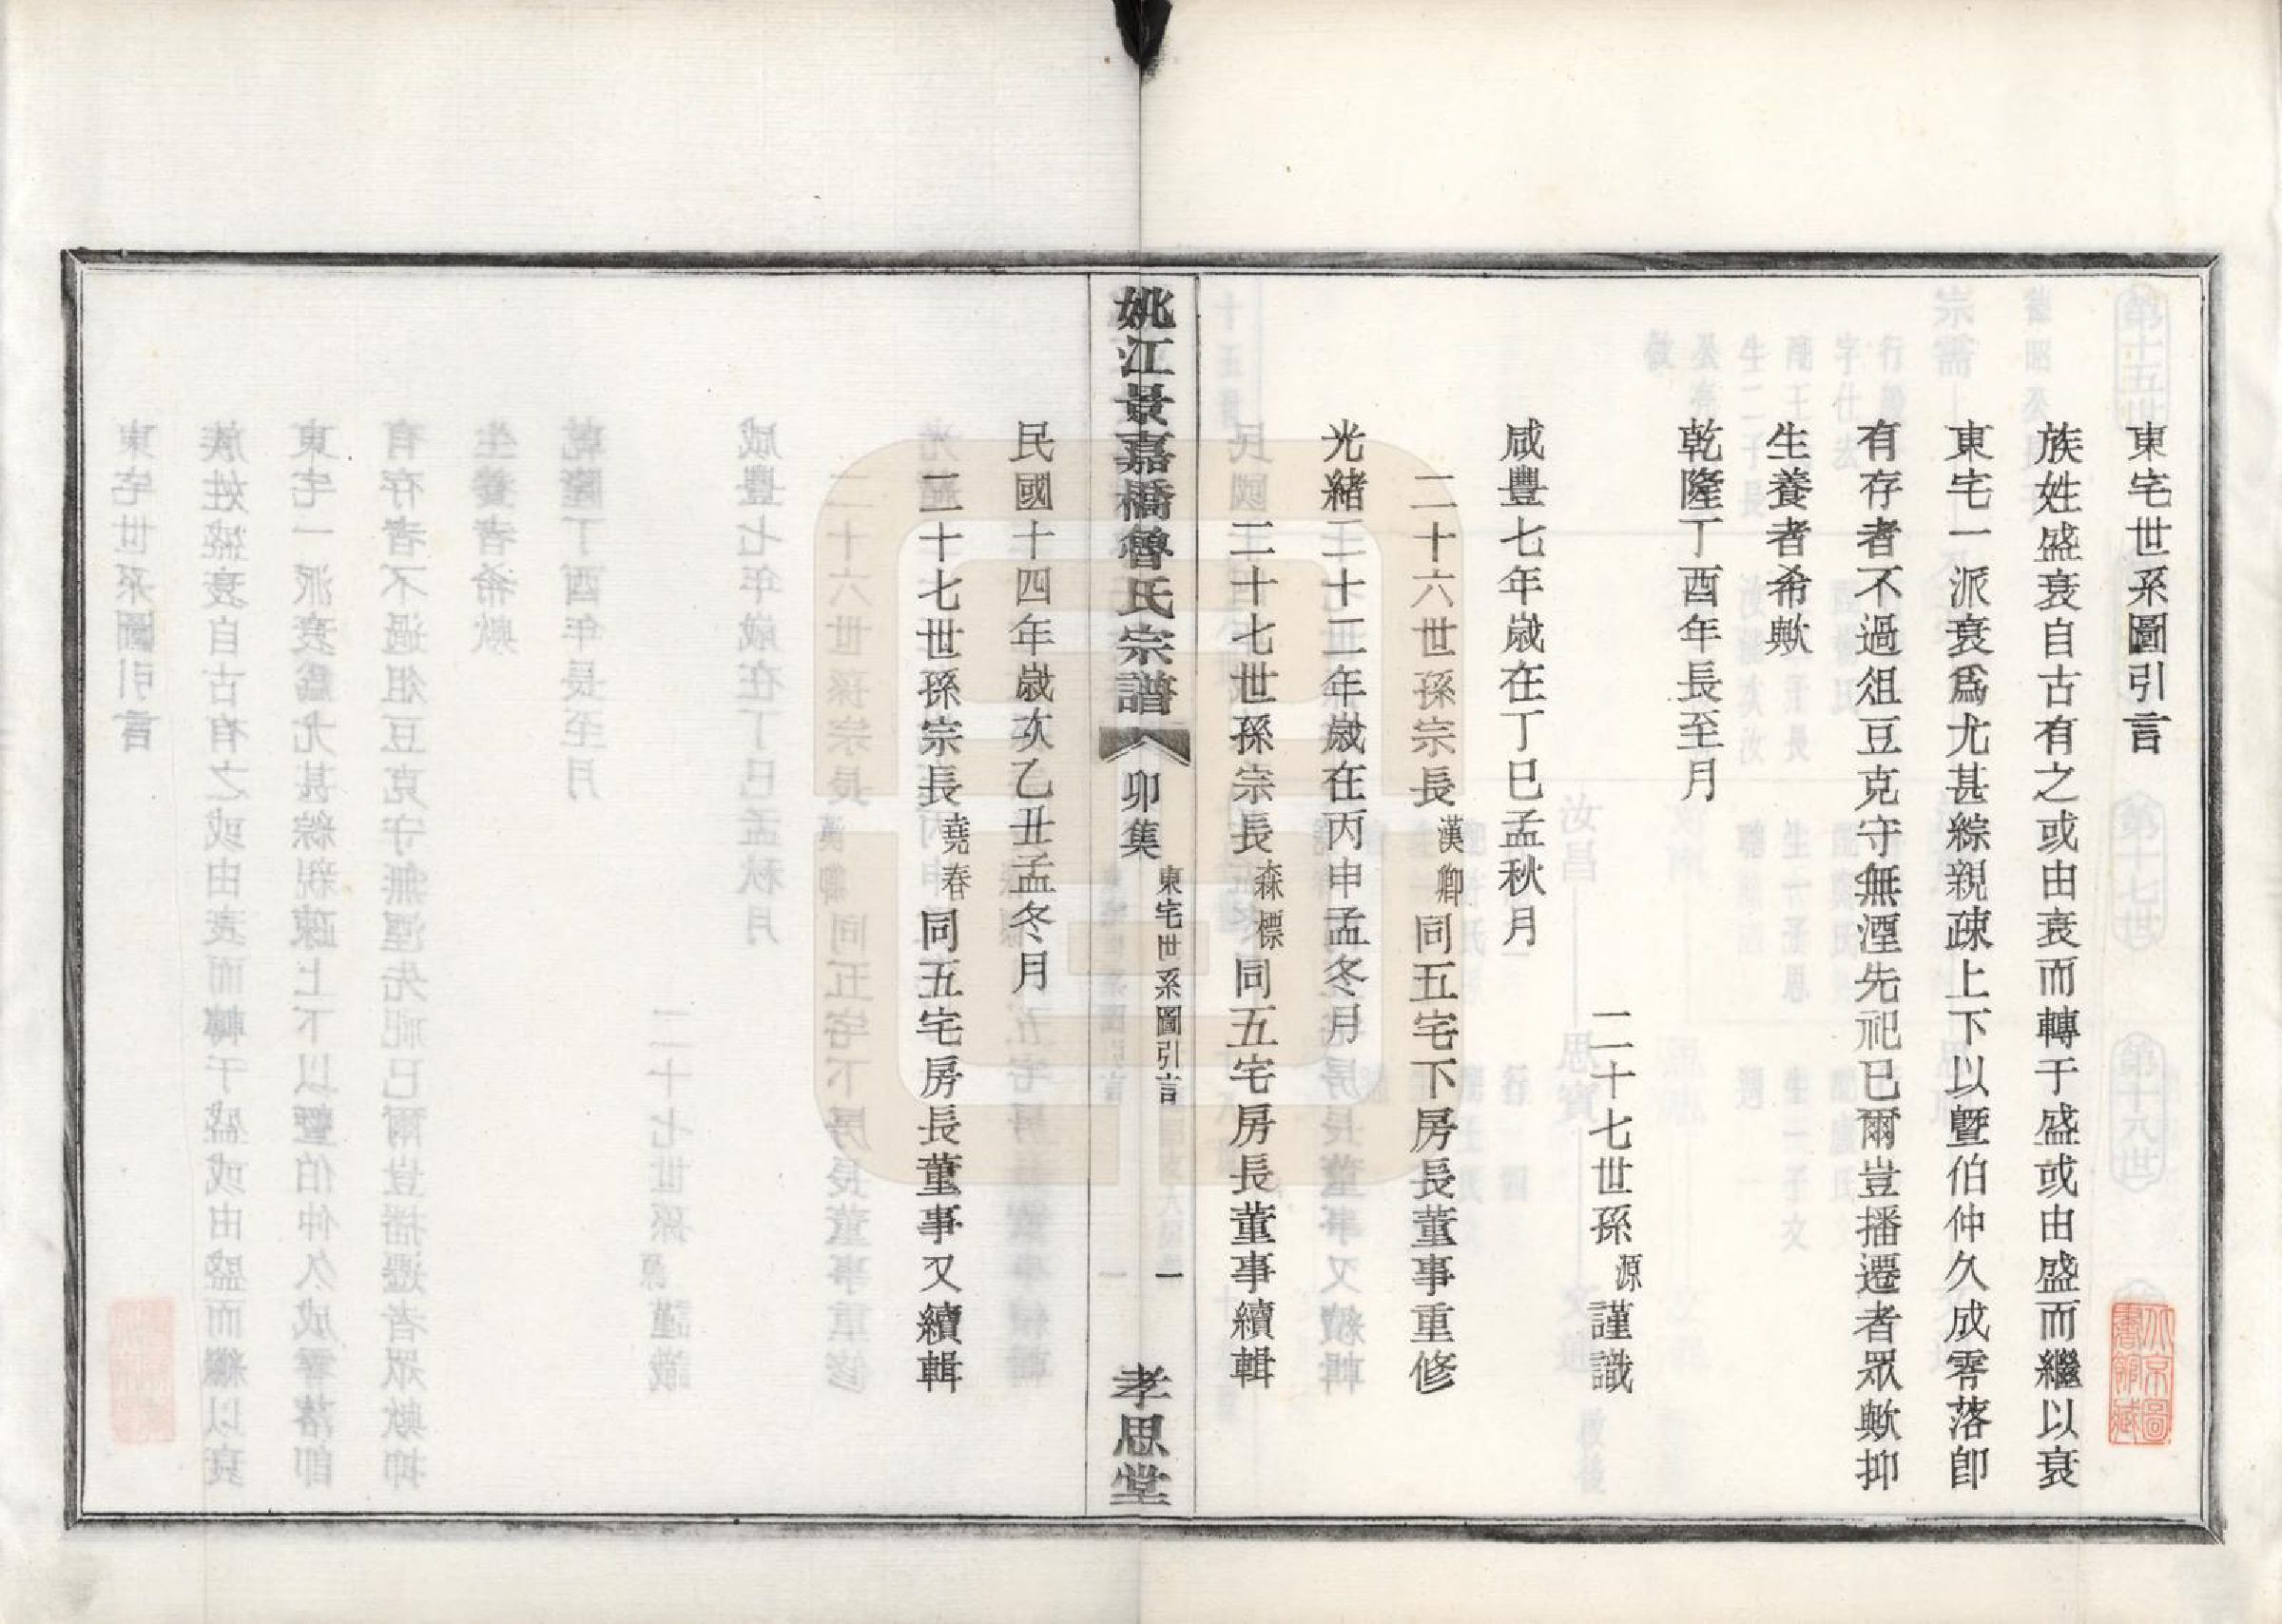 東宅世系圖引言
族姓盛衰自古有之或由衰而轉于盛或由盛而繼以衰
東宅一派衰爲尤甚綜親疎上下以曁伯仲久成零落卽
有存者不過俎豆克守無湮先祀已爾豈播遷者眾歟抑
生養者希歟
乾隆丁酉年長至月
二十七世孫源謹識
咸豐七年歲在丁巳孟秋月
二十六世孫宗長漢卿同五宅下房長董事重修
光緒二十二年歲在丙申孟冬月
二十七世孫宗長森標同五宅房長董事續輯
姚江景嘉橋魯氏宗譜
卯集
東宅世系圖引言
一
孝思堂
民國十四年歲次乙丑孟冬月
二十七世孫宗長堯春同五宅房長董事又續輯
北京圖書館藏